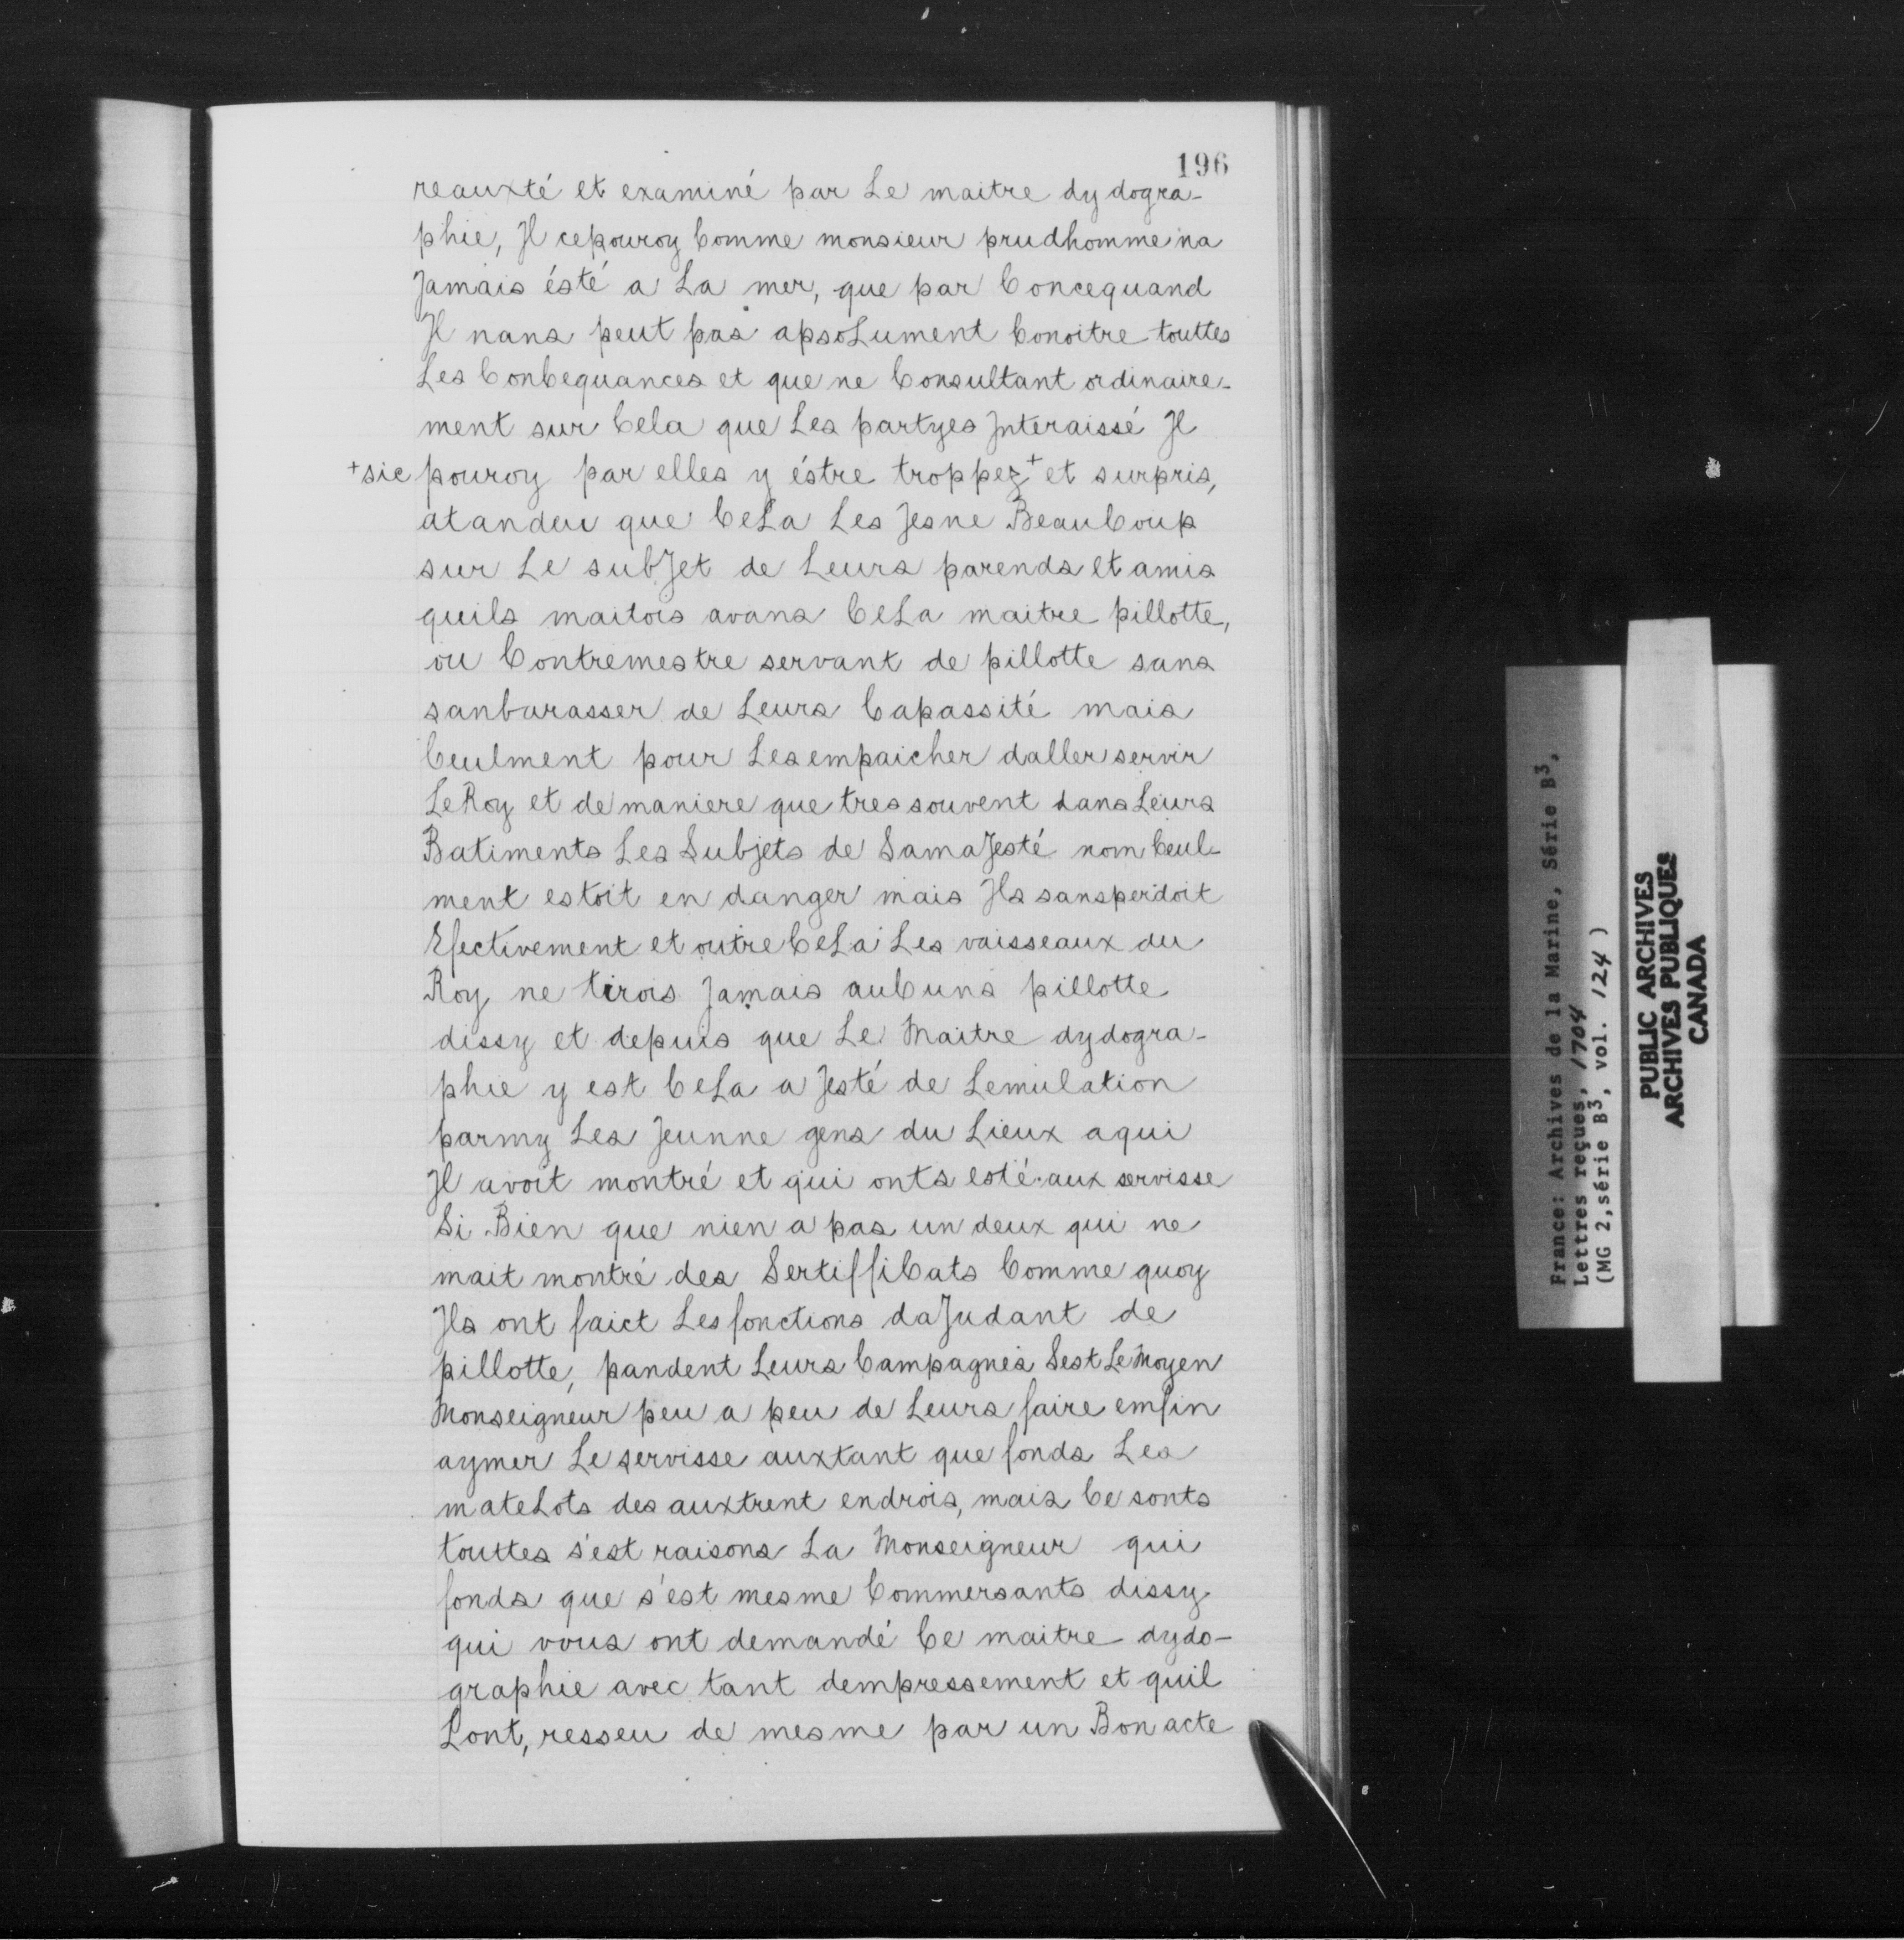 196
reauxté et examiné par Le maitre dydogra-
phie, Il cepouroy Comme monsieur prudhomme na
Jamais ésté a La mer, que par Concequand
Il nans peut pas apsoLument Conoitre touttes
Les ConCequances et que ne Consultant ordinaire-
ment sur Cela que Les partyes Interaissé Il
+sic pouroy par elles y éstre troppez+ et surpris,
atandeu que CeLa Les Jesne BeauCoup
sur Le subJet de Leurs parends et amis
quils maitois avans CeLa maitre pillotte,
ou Contremestre servant de pillotte sans
sanbarasser de Leurs Capassité mais
Ceulment pour Les empaicher daller servir
Le Roy et de maniere que tres souvent dans Leurs
Batiments Les Subjets de SamaJesté nom Ceul-
ment estoit en danger mais Ils sansperdoit
Efectivement et outre CeLa Les vaisseaux du
Roy ne tirois Jamais auCuns pillotte
dissy et depuis que Le Maitre dydogra-
phie y est CeLa a Jesté de Lemulation
parmy Les Jeunne gens du Lieux a qui
Il avoit montré et qui onts esté aux servisse
Si Bien que nien a pas un deux qui ne
mait montré des SertiffiCats Comme quoy
Ils ont faict Les fonctions daJudant de
pillotte, pandent Leurs Campagnes Sest Le Moyen
Monseigneur peu a peu de Leurs faire emfin
aymer Le servisse auxtant que fonds Les
mateLots des auxtrent endrois, mais Ce sonts
touttes s'est raisons La Monseigneur qui
fonds que s'est mesme Commersants dissy
qui vous ont demandé Ce maitre dydo-
graphie avec tant dempressement et quil
Lont, resseu de mesme par un Bon acte
France: Archives de la Marine, Série B3,
Lettres reçues, 1704
(MG 2, série B3, vol. 124)
PUBLIC ARCHIVES
ARCHIVES PUBLIQUES
CANADA